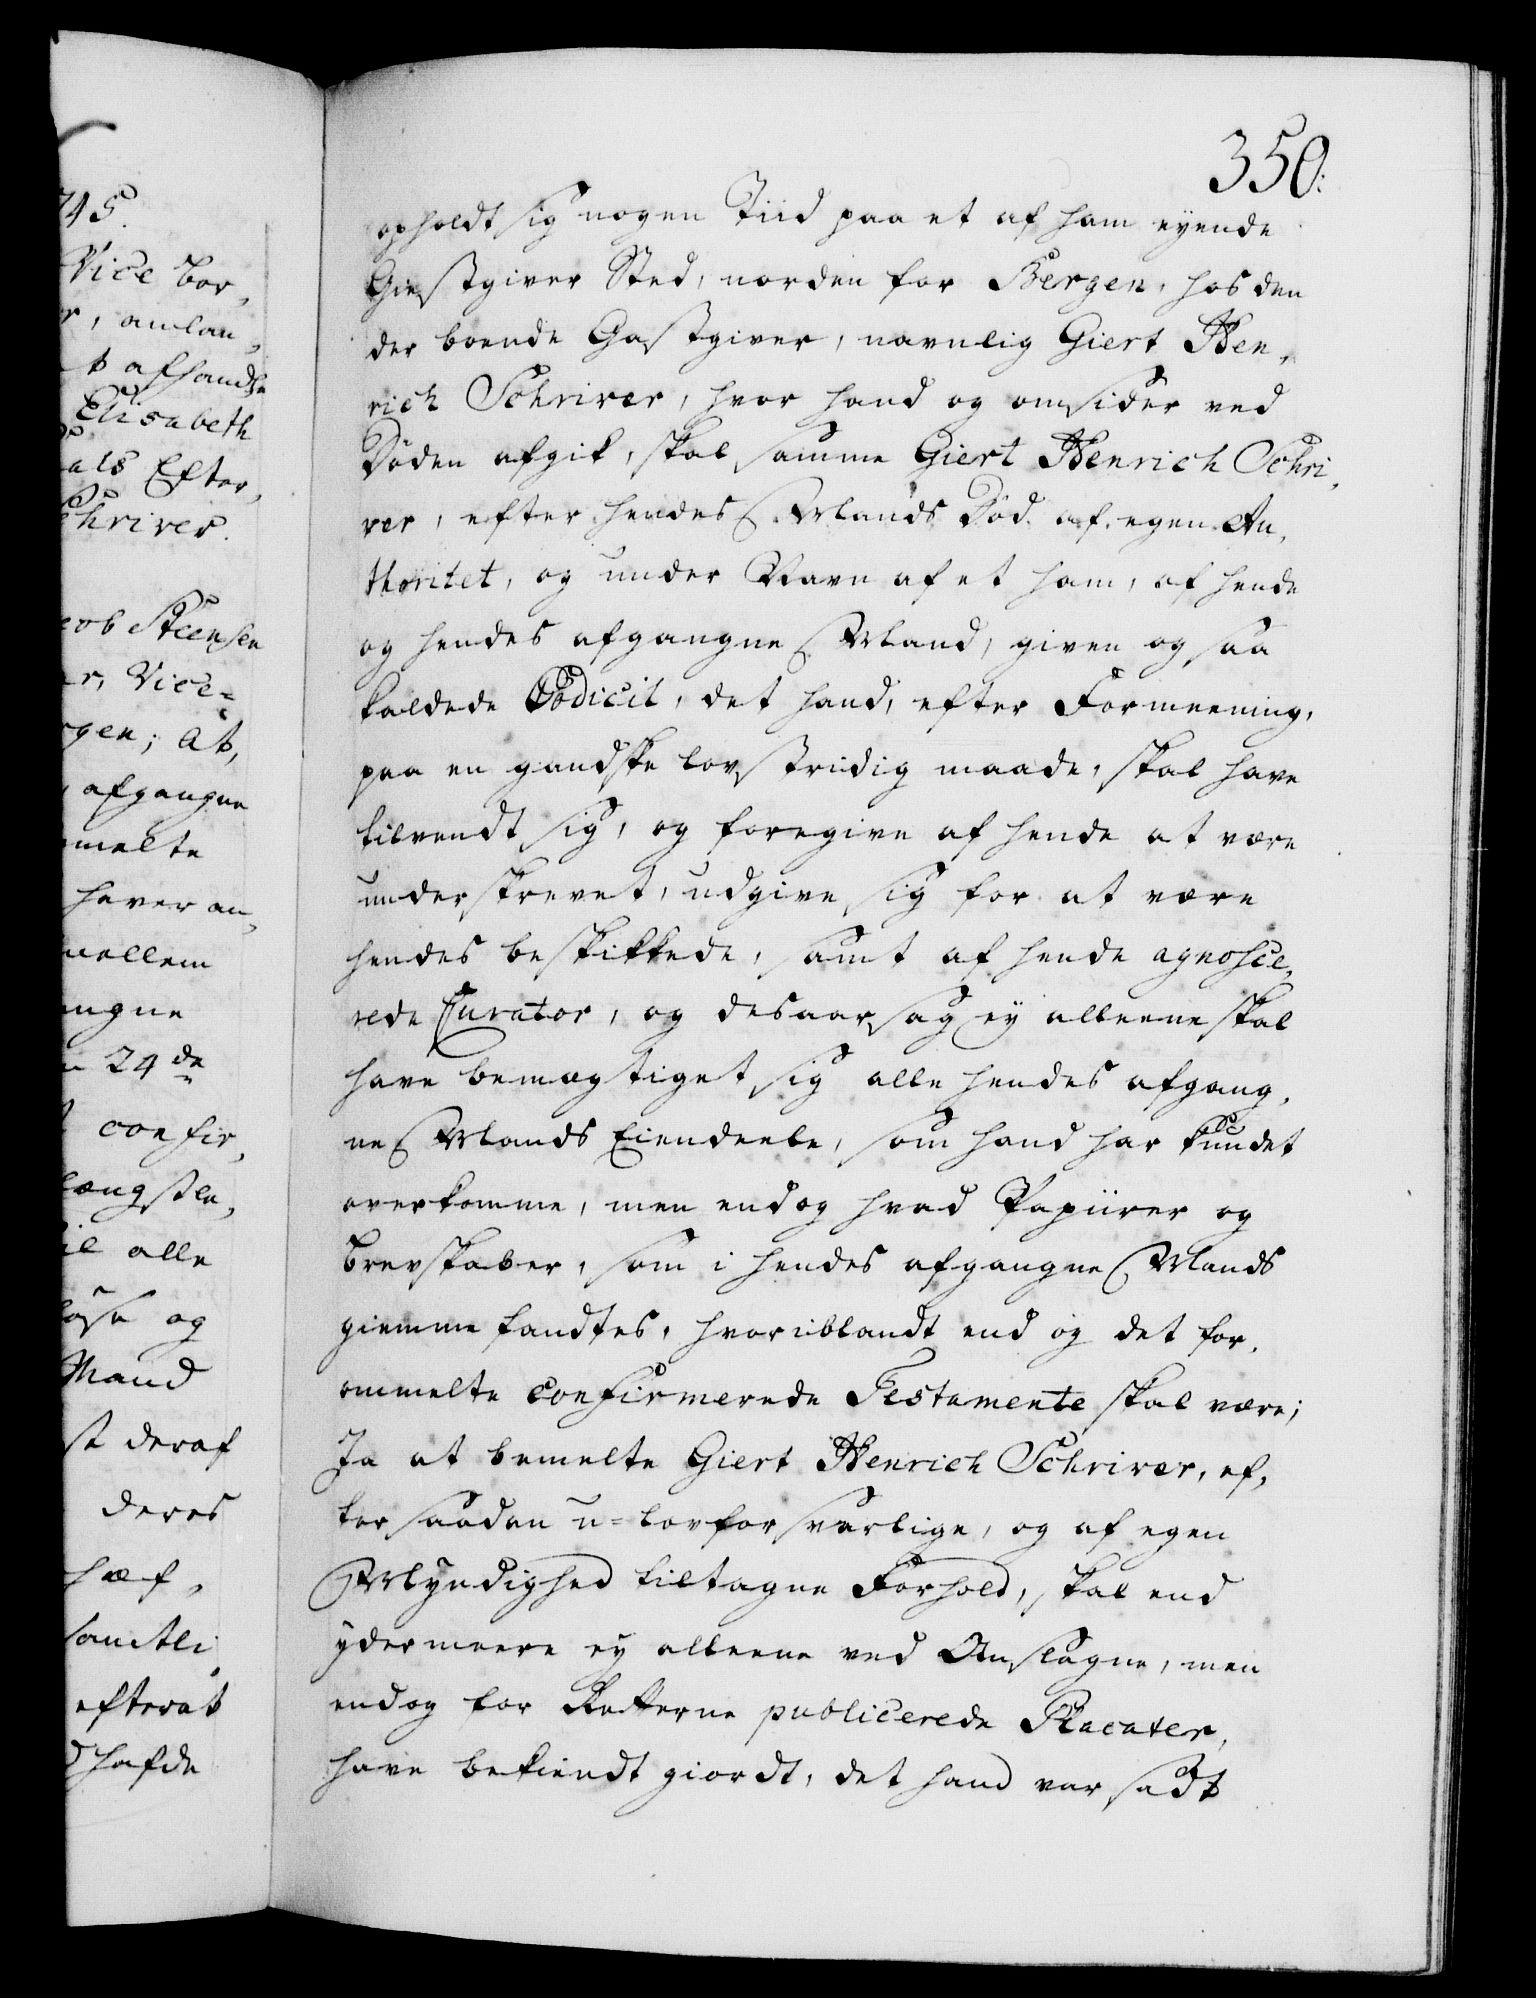 745.
Vice bor,
r, anlan,
t afhandle
Elisabeth
als Efter,
chriver.
cob Steensen
er, Vice-
rgen; At,
afgangne
melte
haver an,
mellem
angne
24de
confir,
længstle,
il alle
og
Mand
st deraf
deres
hæf,
samtli
efterat
d hafde
350.
opholdt sig nogen Tiid paa et af ham eyende
Giestgiver Sted, norden for Bergen, hos den
der boende Gastgiver, navnlig Giert Hen,
rich Schriver, hvor hand og omsider ved
Døden afgik, skal samme Giert Henrich Schri,
ver, efter hendes Mands Død af egen Au,
thoritet, og under Navn af et ham, af hende
og hendes afgangne Mand, given og saa
kaldede Codicil, det hand, efter Formeening,
paa en gandske lovstridig maade, skal have
tilvendt sig, og foregive af hende at være
underskrevet, udgive sig for at være
hendes beskikkede, samt af hende agnosce,
rede Curator, og desaarsag ey alleene skal
have bemægtiget sig alle hendes afgang,
ne Mands Eiendeele, som hand har kundet
overkomme, men endog hvad Papiirer og
brevskaber, som i hendes afgangne Mands
giemme fandtes, hvoriblandt end og det for,
ommelte confirmerede Testamente skal være;
Ja at bemelte Giert Henrich Schriver, ef,
ter saadan u-lovforsvarlige, og af egen
Myndighed tiltagne Forhold, skal end
ydermeere ey alleene ved Anslagne, men
endog for Retterne publicerede Placater,
have bekiendt giordt, det hand var sadt